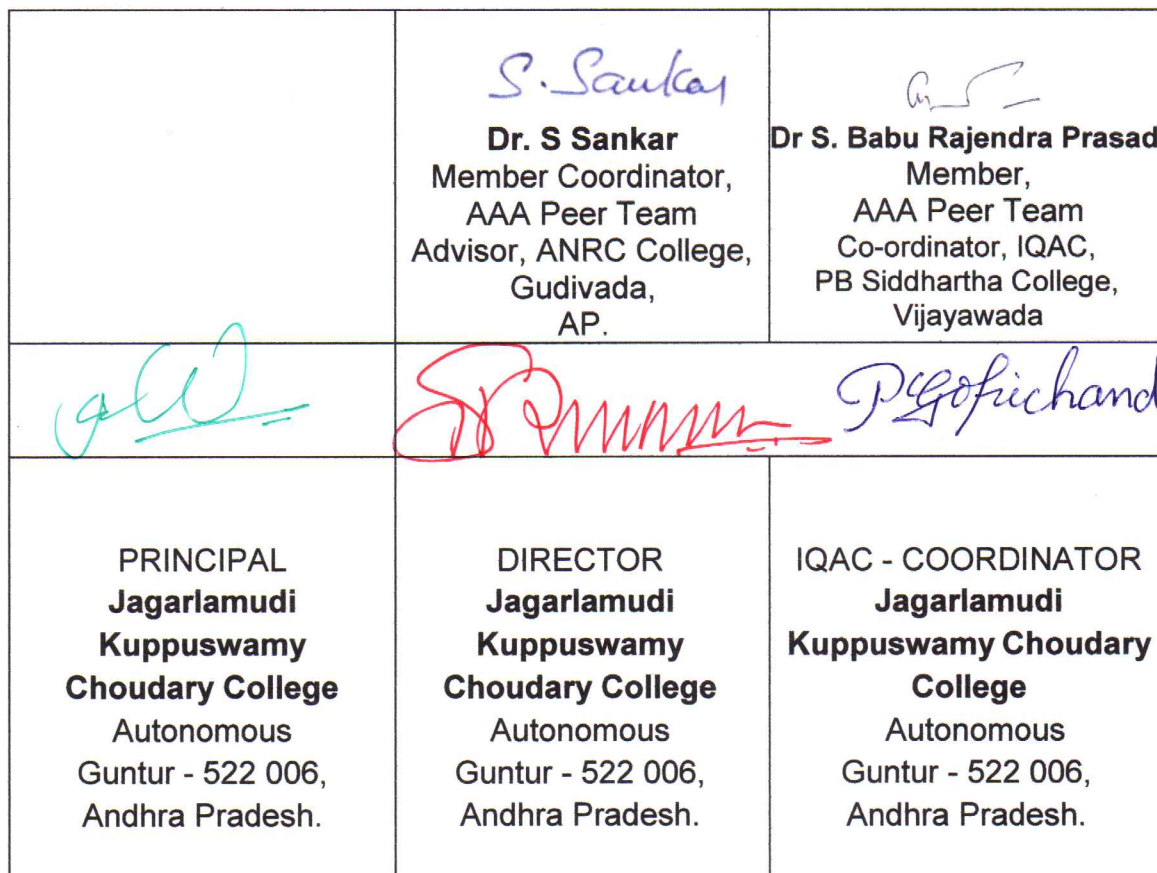 S. Sankar
Dr. S Sankar
Member Coordinator,
AAA Peer Team
Advisor, ANRC College,
Gudivada,
AP.
Dr S. Babu Rajendra Prasad
Member,
AAA Peer Team
Co-ordinator, IQAC,
PB Siddhartha College,
Vijayawada
P Gopichand
PRINCIPAL
Jagarlamudi
Kuppuswamy
Choudary College
Autonomous
Guntur - 522 006,
Andhra Pradesh.
DIRECTOR
Jagarlamudi
Kuppuswamy
Choudary College
Autonomous
Guntur - 522 006,
Andhra Pradesh.
IQAC - COORDINATOR
Jagarlamudi
Kuppuswamy Choudary
College
Autonomous
Guntur - 522 006,
Andhra Pradesh.